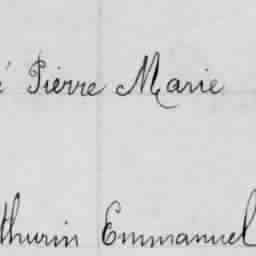 é Pierre Marie
thurin Emmanuel